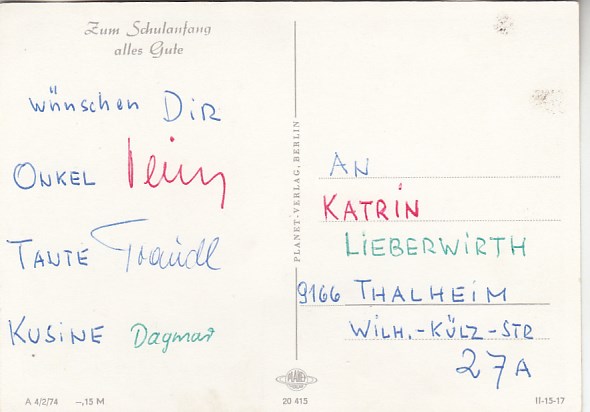 Zum Schulanfang
alles Gute
wünschen DIR
ONKEL Heinz
TANTE Traudl
KUSINE Dagmar
A 4/2/74 –,15 M
PLANET-VERLAG, BERLIN
PLANET
20 415
AN
KATRIN
LIEBERWIRTH
9166 THALHEIM
WILH.-KÜLZ-STR
27A
II-15-17